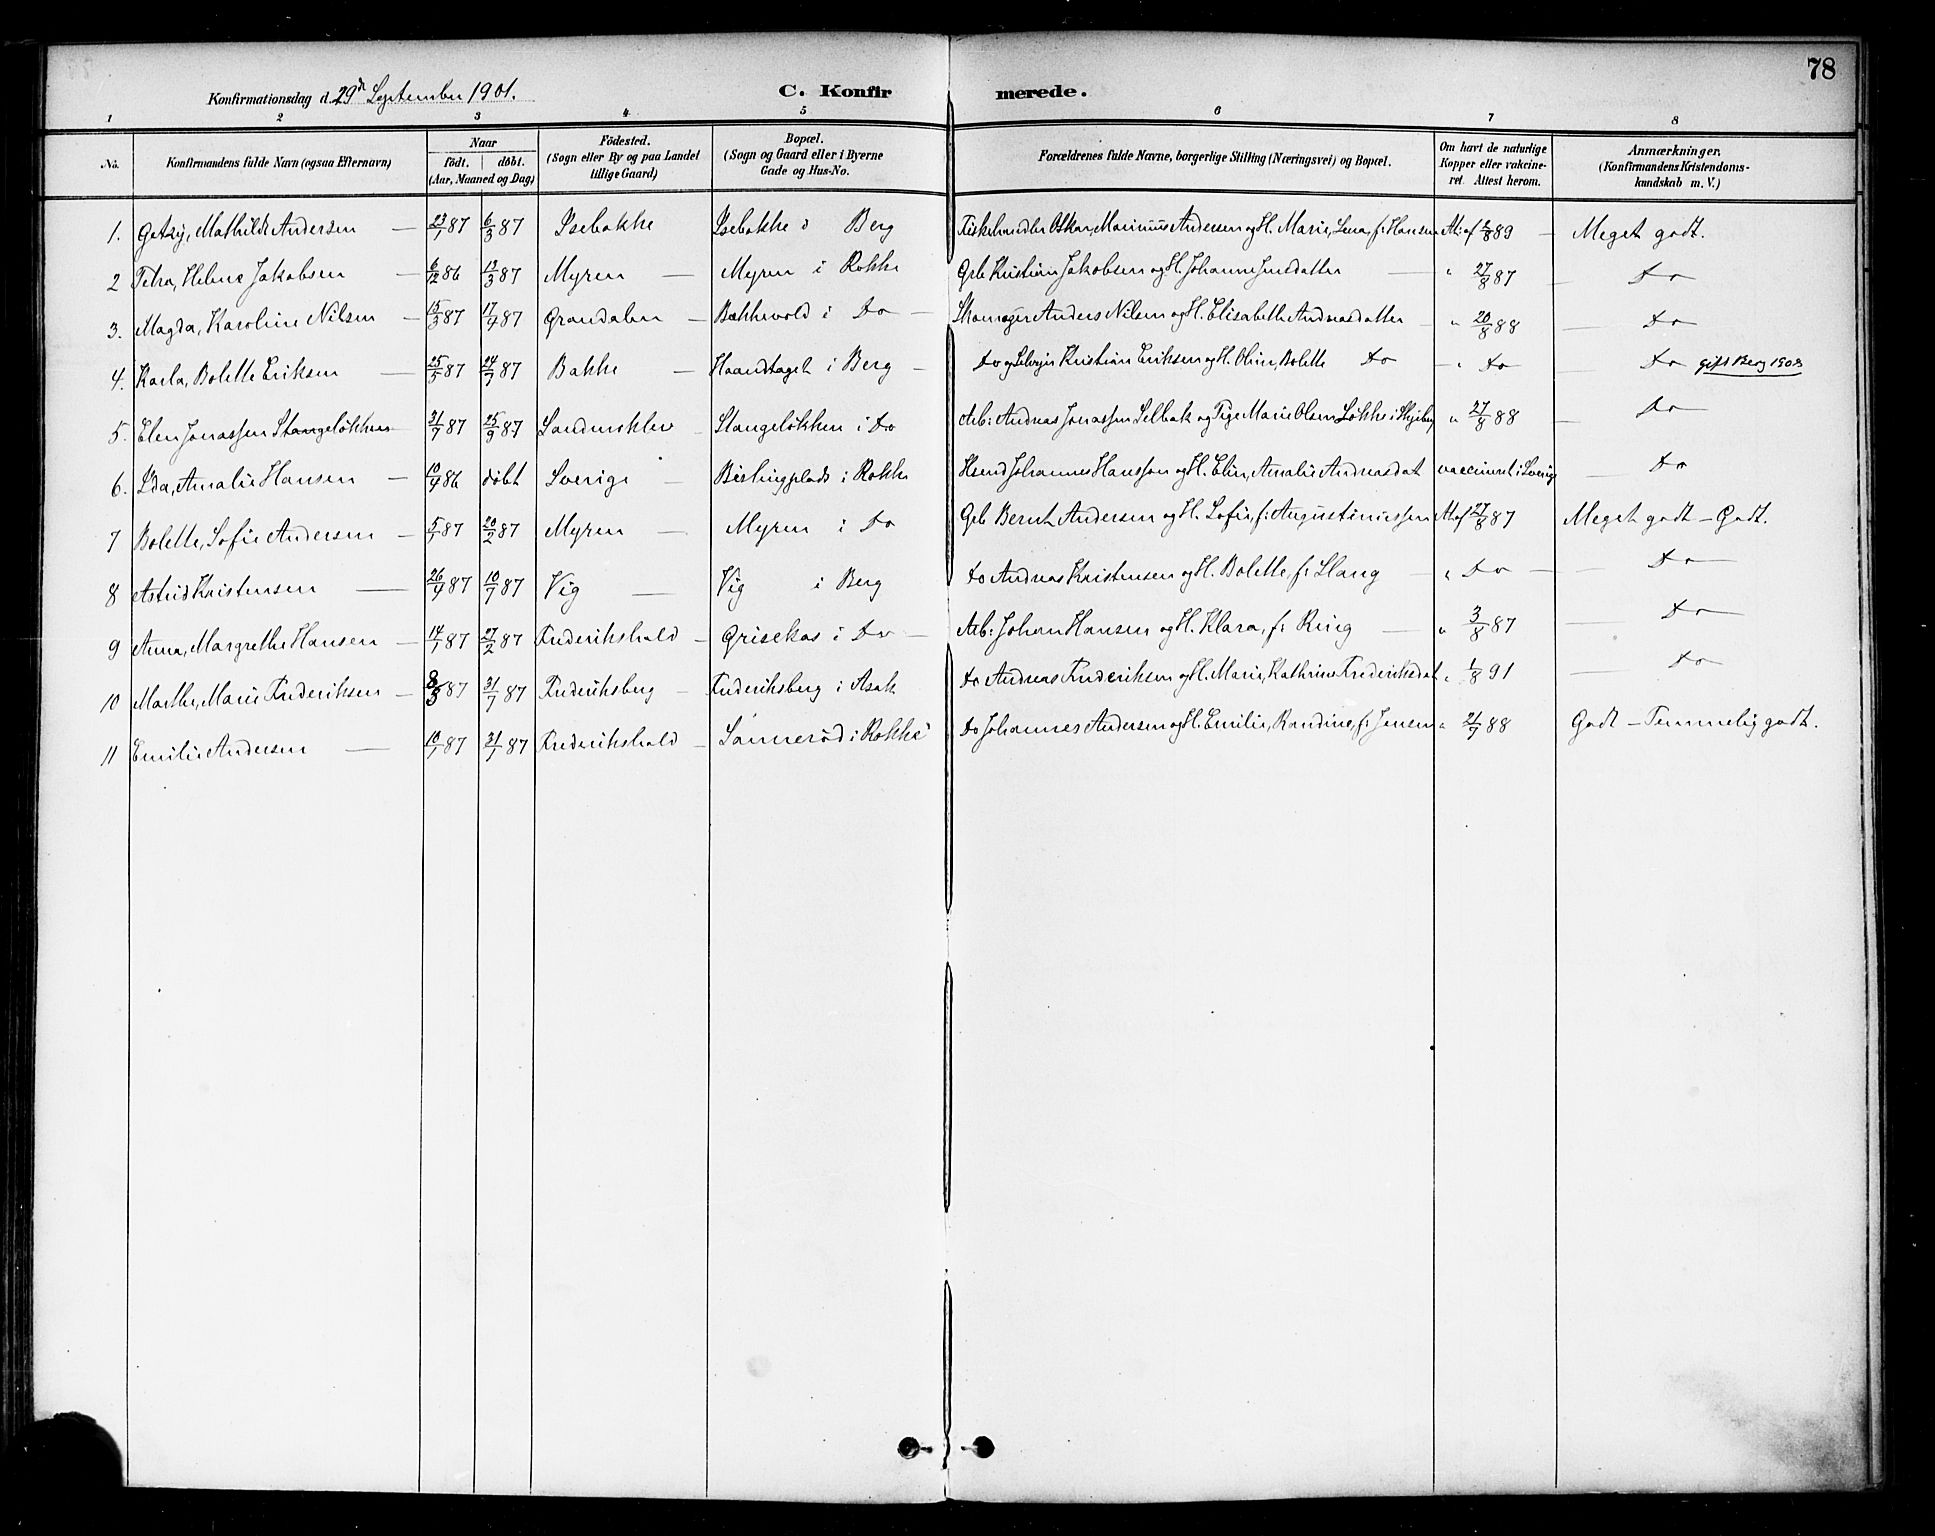 78
Konfirmationsdag d. 29de September 1901. C. Konfirmerede.
1 2 3 4 5 6 7 8
No. Konfirmandens fulde Navn (ogsaa Efternavn) Naar født. døbt. (Aar, Maaned og Dag) Fødested. (Sogn eller By og paa Landet tillige Gaard) Bopæl. (Sogn og Gaard eller i Byerne Gade og Hus-No. Forældrenes fulde Navne, borgerlige Stilling (Næringsvei) og Bopæl. Om havt de naturlige Kopper eller vakcineret. Attest herom. Anmærkninger. (Konfirmandens Kristendomskundskab m. V.)
1. Getzy, Mathilde Andersen — 23/1 87 6/3 87 Isebakke Isebakke i Berg Fiskehandler Oskar, Marinius Andersen og H. Marie, Lena, f: Hansen At: af /8 89 — Meget godt.
2 Petra, Helene Jakobsen — 6/12 86 13/3 87 Myren — Myren i Rokke Grb Kristian Jakobsen og H. Johanne Jensdatter — " 27/8 87 — Do
3. Magda, Karoline Nilsen — 15/3 87 17/4 87 Grandalen — Bakkevold i Do — Skomager Anders Nilsen og H. Elisabeth Andreasdatter — " 20/8 88 — Do
4. Karla, Bolette Eriksen — 25/5 87 24/7 87 Bakke — Haandtaget i Berg — Do og Selveier Kristian Eriksen og H. Oline, Bolette Do — " Do — Do gift Berg 1908
5. Elen Jonassen Stangeløkken 31/7 87 25/9 87 Sandmoklev — Stangeløkken i Do Arb: Andreas Jonassen Selbak og Pige Marie Olsen Løkke i Skjeberg " 27/8 88 — Do
6. Ida, Amalie Hansen — 10/4 86 døbt Sverige — Bislingplads i Rokke Hsmd Johannes Hansson og H. Elin, Amalie Andreasdat vaccineret i Sverige — Do
7 Bolette, Sofie Andersen — 5/1 87 20/2 87 Myren — Myren i Do Grb Bernt Andersen og H. Sofie, f: Augustiniussen At: af 27/8 87 Meget godt — Godt.
8 Astrid Kristensen — 26/4 87 10/7 87 Vig — Vig i Berg Do Andreas Kristensen og H. Bolette, f: Slang — " Do — Do
9 Anna, Margrethe Hansen — 14/1 87 27/2 87 Frederikshald — Grisekas i Do — Arb: Johan Hansen og H. Klara, f: Ring — " 3/8 87 — Do
10 Marthe, Marie Frederiksen — 8/5 87 31/7 87 Frederiksberg — Frederiksberg i Asak Do Andreas Frederiksen og H. Marie, Kathrine Frederiksdat " 1/8 91 — Do
11 Emilie Andersen — 10/1 87 31/7 87 Frederikshald — Sannerød i Rokke Do Johannes Andersen og H. Emilie, Randine, f: Jensen " 21/7 88 Godt — Temmelig godt.